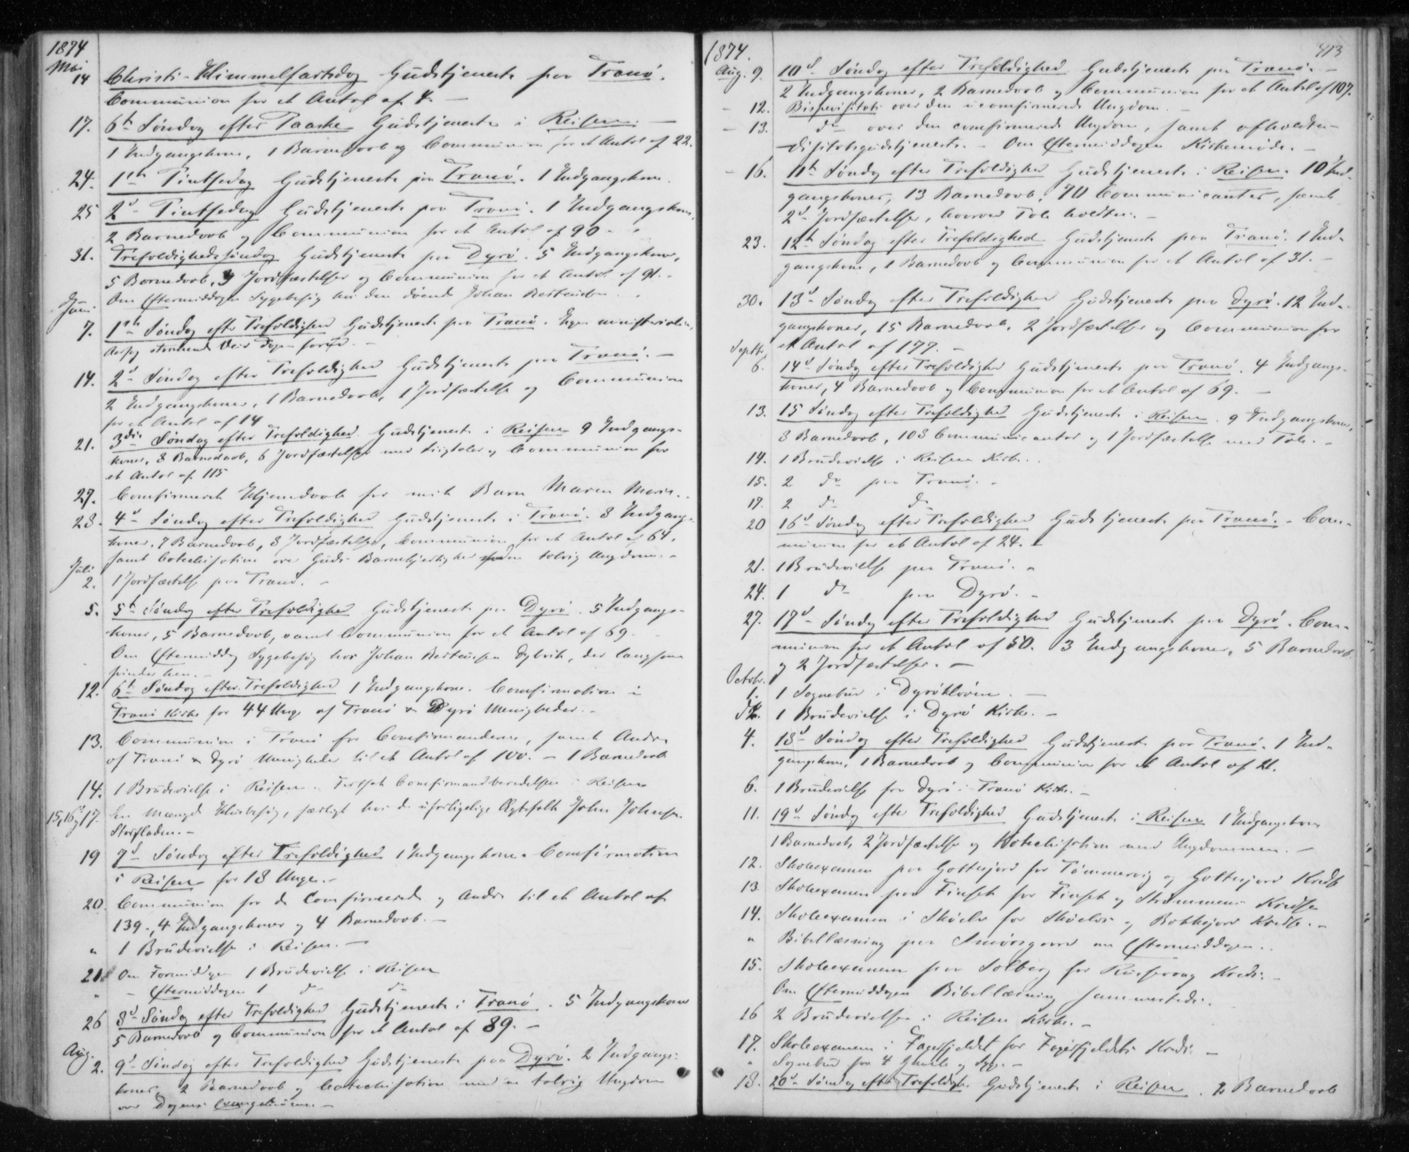 1874
Mai
14 Christi-Himmelfartsdag Gudstjeneste paa Tranø.
Communion for et Antal af 4. —
17. 6te Søndag efter Paaske Gudstjeneste i Reisen. —
1 Indgangskone, 1 Barnedaab og Communion for et Antal af 22.
24. 1ste Pintsedag Gudstjeneste paa Tranø. 1 Indgangskone.
25 2den Pintsedag Gudstjeneste paa Tranø. 1 Indgangskone,
2 Barnedaab og Communion for et Antal af 90 —
31. Trefoldighedssøndag Gudstjeneste paa Dyrø. 5 Indgangskoner,
5 Barnedaab, Jordfæstelser og Communion for et Antal af 91. —
Om Eftermiddagen Sygebesøg hos den døende Johan
Juni
7. 1ste Søndag efter Trefoldighed Gudstjeneste paa Tranø. Ingen
14. 2den Søndag efter Trefoldighed Gudstjeneste paa Tranø. —
2 Indgangskoner, 1 Barnedaab, 1 Jordfæstelse og Communion
for et Antal af 14
21. 3die Søndag efter Trefoldighed Gudstjeneste i Reisen 9 Indgangs-
koner, 8 Barnedaab, 6 Jordfæstelser med Ligtaler og Communion for
et Antal af 115
27. Comfirmeret Hjemdaab for mit Barn Maren Marie.
28. 4de Søndag efter Trefoldighed Gudstjeneste i Tranø. 8 Indgangs-
koner, 7 Barnedaab, 8 Jordfæstelser, Communion for et Antal af 64,
samt Catechisation over Guds Barmhjertighed talrig Ungdom. —
Juli
2. 1 Jordfæstelse paa Tranø. —
5. 5te Søndag efter Trefoldighed Gudstjeneste paa Dyrø. 5 Indgangs-
koner, 5 Barnedaab, samt Communion for et Antal af 69.
Om Eftermiddag Sygebesøg hos Johan Dyrvik, der langsom
12. 6te Søndag efter Trefoldighed 1 Indgangskone. Comfirmation i
Tranø Kirke for 44 Unge af Tranø & Dyrø Menigheder. —
13. Communion i Tranø for Comfirmanderne, samt Andre
af Tranø & Dyrø Menigheder til et Antal af 100. — 1 Barnedaab
14. 1 Brudevielse i Reisen. Comfirmandberedelse i Reisen
15, 16, 17. En Mængde Huusbesøg, særligt hos de Ægtefolk John Johnsen
19 7de Søndag efter Trefoldighed 1 Indgangskone. Comfirmation
i Reisen for 18 Unge. —
20. Communion for de Comfirmerede og Andre til et Antal af
139. 4 Indgangskoner og 4 Barnedaab. —
" 1 Brudevielse i Reisen. —
21 Om Formiddagen 1 Brudevielse i Reisen
" — Eftermiddagen 1 do do
26 8de Søndag efter Trefoldighed Gudstjeneste i Tranø. 5 Indgangskoner
5 Barnedaab og Communion for et Antal af 89. —
Aug.
2. 9de Søndag efter Trefoldighed Gudstjeneste paa Dyrø. 2 Indgangs-
koner, 2 Barnedaab og Catechisation med en talrig Ungdom
over Dagens Evangelium. —
1874. 413
Aug. 9. 10de Søndag efter Trefoldighed Gudstjeneste paa Tranø. —
2 Indgangskoner, 2 Barnedaab og Communion for et Antal af 107.
— 12. Bispevisitats over den ucomfirmerede Ungdom. —
— 13. do over den comfirmerede Ungdom, samt afholdtes
Visitatsgudstjeneste. — Om Eftermiddagen Kirkemøde. —
— 16. 11te Søndag efter Trefoldighed Gudstjeneste i Reisen. 10 Ind-
gangskoner, 13 Barnedaab, 70 Communicanter, samt
2de Jordfæstelse, hvorved Tale holdtes. —
23. 12te Søndag efter Trefoldighed Gudstjeneste paa Tranø. 1 Ind-
gangskone, 1 Barnedaab og Communion for et Antal af 31. —
30. 13de Søndag efter Trefoldighed Gudstjeneste paa Dyrø. 12 Ind-
gangskoner, 15 Barnedaab, 2 Jordfæstelser og Communion for
et Antal af 177. —
Septbr.
6. 14de Søndag efter Trefoldighed Gudstjeneste paa Tranø. 4 Indgangs-
koner, 4 Barnedaab og Communion for et Antal af 69. —
13. 15 Søndag efter Trefoldighed Gudstjeneste i Reisen. 9 Indgangskoner,
8 Barnedaab, 103 Communicanter og 1 Jordfæstelse med Tale. —
14. 1 Brudevielse i Reisen Kirke.
15. 2 do paa Tranø. —
17. 2 do do
20 16de Søndag efter Trefoldighed Gudstjeneste paa Tranø. — Com-
munion for et Antal af 24. —
21. 1 Brudevielse paa Tranø. —
24. 1 do paa Dyrø. —
27. 17de Søndag efter Trefoldighed Gudstjeneste paa Dyrø. Com-
munion for et Antal af 50. 3 Indgangskoner, 5 Barnedaab
og 2 Jordfæstelser. —
Octbr.
1. 1 Sognebud i Dyrøkloven. —
1 Brudevielse i Dyrø Kirke. —
4. 18de Søndag efter Trefoldighed Gudstjeneste paa Tranø. 1 Ind-
gangskone, 1 Barnedaab og Communion for et Antal af 21.
6. 1 Brudevielse fra Dyrø i Tranø Kirke. —
11. 19de Søndag efter Trefoldighed Gudstjeneste i Reisen 1 Indgangskone,
1 Barnedaab, 2 Jordfæstelser og Catechisation med Ungdommen. —
12. Skoleexamen paa Gottesjord for Tømmervig og Gottesjord Kreds
13 Skoleexamen paa Finset for Finset og Strømmens Kredse
14. Skoleexamen i Skøelv for Skøelvs og Bakkejord Kredse. —
" Bibellæsning paa om Eftermiddagen.
15. Skoleexamen paa Solberg for Kreds. —
Om Eftermiddagen Bibellæsning sammesteds.
16 2 Brudevielser i Reisen Kirke. —
17. Skoleexamen i Fagerfjeldet for Fagerfjeldets Kreds. —
" Sognebud for 4 Gamle og Syge. —
18. 20de Søndag efter Trefoldighed Gudstjeneste i Reisen. 2 Barnedaab